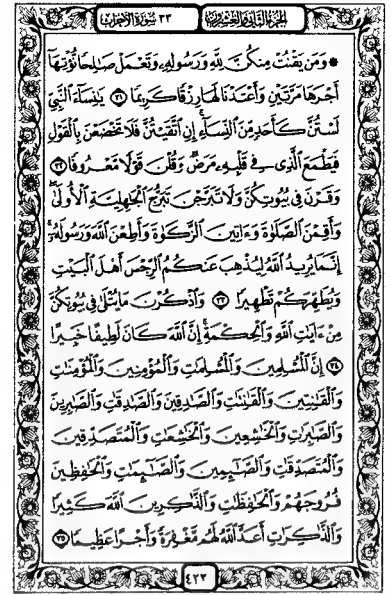 الجزء الثاني والعشرون
٣٣ سورة الأحزاب
۞ وَمَن يَقْنُتْ مِنكُنَّ لِلَّهِ وَرَسُولِهِۦ وَتَعْمَلْ صَٰلِحًا نُّؤْتِهَآ
أَجْرَهَا مَرَّتَيْنِ وَأَعْتَدْنَا لَهَا رِزْقًا كَرِيمًا ٣١ يَٰنِسَآءَ ٱلنَّبِيِّ
لَسْتُنَّ كَأَحَدٍ مِّنَ ٱلنِّسَآءِ إِنِ ٱتَّقَيْتُنَّ فَلَا تَخْضَعْنَ بِٱلْقَوْلِ
فَيَطْمَعَ ٱلَّذِى فِى قَلْبِهِۦ مَرَضٌ وَقُلْنَ قَوْلًا مَّعْرُوفًا ٣٢
وَقَرْنَ فِى بُيُوتِكُنَّ وَلَا تَبَرَّجْنَ تَبَرُّجَ ٱلْجَٰهِلِيَّةِ ٱلْأُولَىٰ
وَأَقِمْنَ ٱلصَّلَوٰةَ وَءَاتِينَ ٱلزَّكَوٰةَ وَأَطِعْنَ ٱللَّهَ وَرَسُولَهُۥٓ
إِنَّمَا يُرِيدُ ٱللَّهُ لِيُذْهِبَ عَنكُمُ ٱلرِّجْسَ أَهْلَ ٱلْبَيْتِ
وَيُطَهِّرَكُمْ تَطْهِيرًا ٣٣ وَٱذْكُرْنَ مَا يُتْلَىٰ فِى بُيُوتِكُنَّ
مِنْ ءَايَٰتِ ٱللَّهِ وَٱلْحِكْمَةِ إِنَّ ٱللَّهَ كَانَ لَطِيفًا خَبِيرًا
٣٤ إِنَّ ٱلْمُسْلِمِينَ وَٱلْمُسْلِمَٰتِ وَٱلْمُؤْمِنِينَ وَٱلْمُؤْمِنَٰتِ
وَٱلْقَٰنِتِينَ وَٱلْقَٰنِتَٰتِ وَٱلصَّٰدِقِينَ وَٱلصَّٰدِقَٰتِ وَٱلصَّٰبِرِينَ
وَٱلصَّٰبِرَٰتِ وَٱلْخَٰشِعِينَ وَٱلْخَٰشِعَٰتِ وَٱلْمُتَصَدِّقِينَ
وَٱلْمُتَصَدِّقَٰتِ وَٱلصَّٰٓئِمِينَ وَٱلصَّٰٓئِمَٰتِ وَٱلْحَٰفِظِينَ
فُرُوجَهُمْ وَٱلْحَٰفِظَٰتِ وَٱلذَّٰكِرِينَ ٱللَّهَ كَثِيرًا
وَٱلذَّٰكِرَٰتِ أَعَدَّ ٱللَّهُ لَهُم مَّغْفِرَةً وَأَجْرًا عَظِيمًا ٣٥
٤٢٢